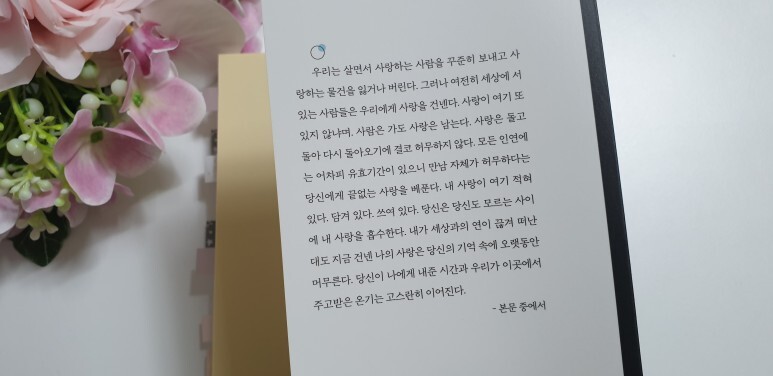 우리는 살면서 사랑하는 사람을 꾸준히 보내고 사
랑하는 물건을 잃거나 버린다. 그러나 여전히 세상에 서
있는 사람들은 우리에게 사랑을 건넨다. 사랑이 여기 또
있지 않냐며. 사람은 가도 사랑은 남는다. 사랑은 돌고
돌아 다시 돌아오기에 결코 허무하지 않다. 모든 인연에
는 어차피 유효기간이 있으니 만남 자체가 허무하다는
당신에게 끝없는 사랑을 베푼다. 내 사랑이 여기 적혀
있다. 담겨 있다. 쓰여 있다. 당신은 당신도 모르는 사이
에 내 사랑을 흡수한다. 내가 세상과의 연이 끊겨 떠난
대도 지금 건넨 나의 사랑은 당신의 기억 속에 오랫동안
머무른다. 당신이 나에게 내준 시간과 우리가 이곳에서
주고받은 온기는 고스란히 이어진다.
- 본문 중에서